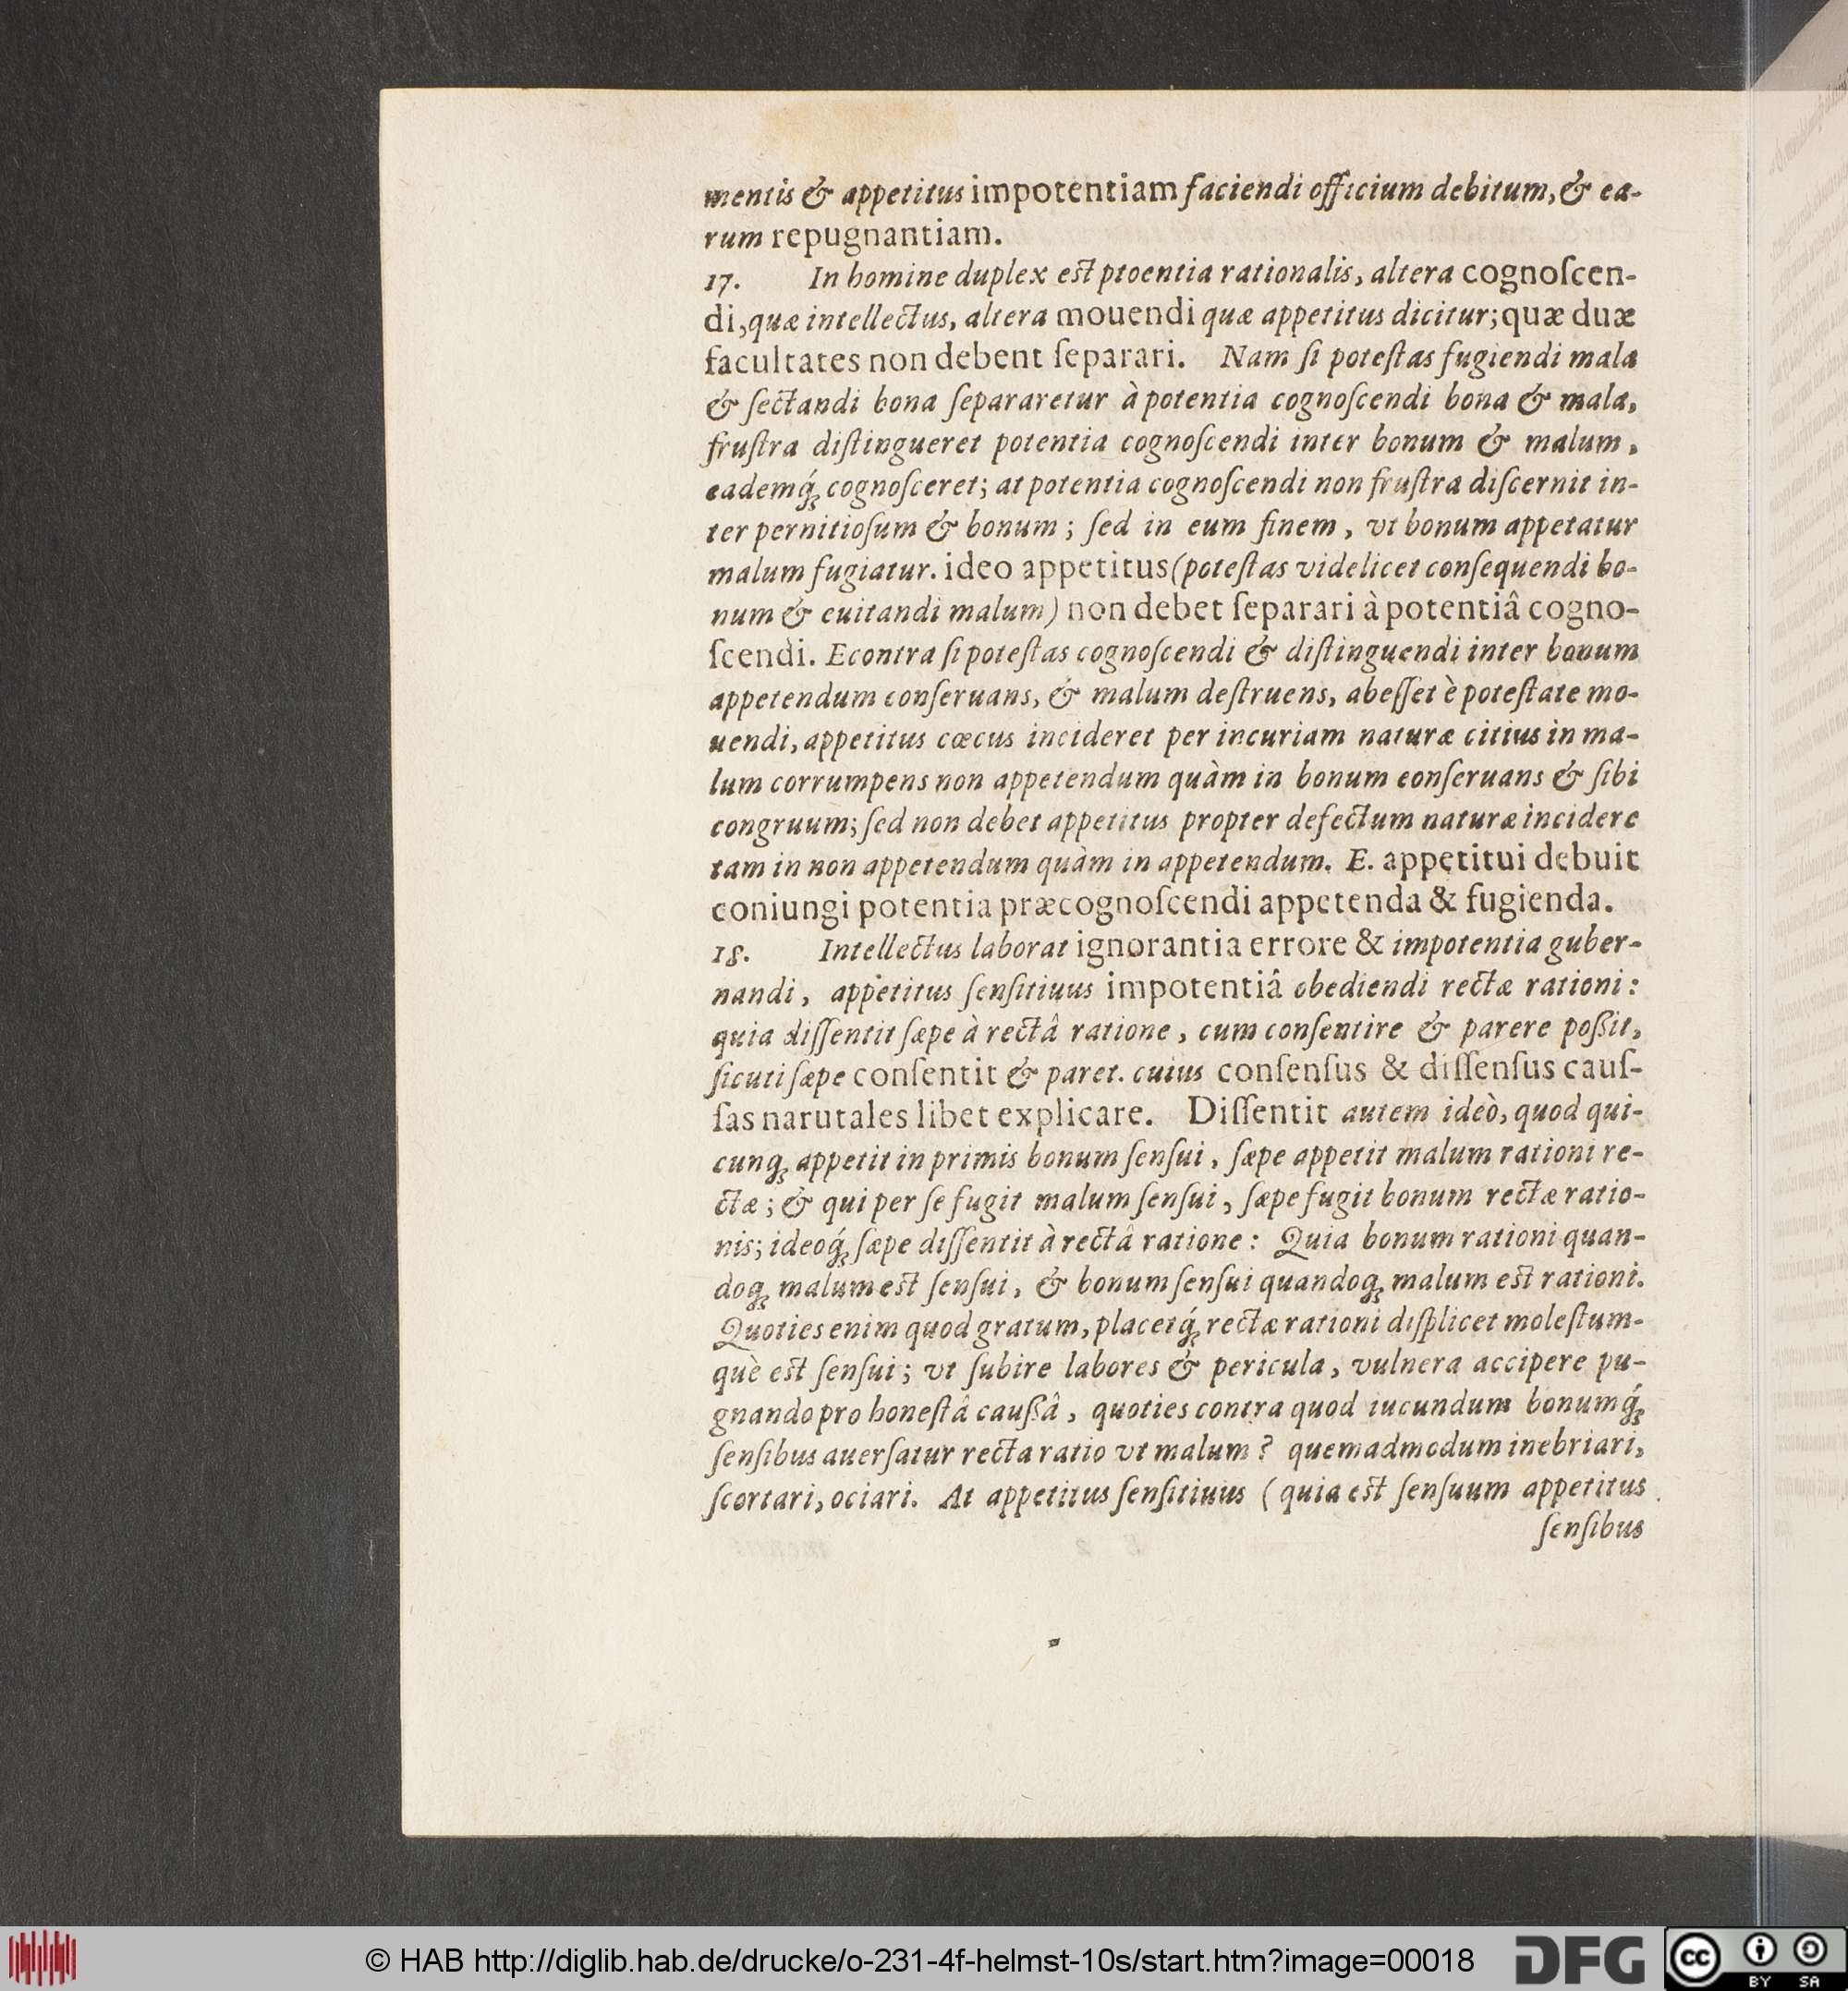 mentis & appetitus impotentiam faciendi officium debitum, & ea-
rum repugnantiam.
17. In homine duplex est ptoentia rationalis, altera cognoſcen-
di, quæ intellectus, altera mouendi quæ appetitus dicitur; quæ duæ
facultates non debent ſeparari. Nam ſi poteſtas fugiendi mala
& ſectandi bona ſepararetur à potentia cognoſcendi bona & mala,
fruſtra diſtingueret potentia cognoſcendi inter bonum & malum,
eademq́ꝫ cognoſceret; at potentia cognoſcendi non fruſtra diſcernit in-
ter pernitioſum & bonum; ſed in eum finem, vt bonum appetatur
malum fugiatur. ideo appetitus (poteſtas videlicet conſequendi bo-
num & euitandi malum) non debet ſeparari à potentiâ cogno-
ſcendi. Econtra ſi poteſtas cognoſcendi & diſtinguendi inter bonum
appetendum conſeruans, & malum deſtruens, abeſſet è poteſtate mo-
uendi, appetitus cœcus incideret per incuriam naturæ citius in ma-
lum corrumpens non appetendum quàm in bonum conſeruans & ſibi
congruum; ſed non debet appetitus propter defectum naturæ incidere
tam in non appetendum quàm in appetendum. E. appetitui debuit
coniungi potentia præcognoſcendi appetenda & fugienda.
18. Intellectus laborat ignorantia errore & impotentia guber-
nandi, appetitus ſenſitiuus impotentiâ obediendi rectæ rationi:
quia diſſentit ſæpe à rectâ ratione, cum conſentire & parere poßit,
ſicuti ſæpe conſentit & paret. cuius conſenſus & diſſenſus cauſ-
ſas narutales libet explicare. Diſſentit autem ideò, quod qui-
cunqꝫ appetit in primis bonum ſenſui, ſæpe appetit malum rationi re-
ctæ; & qui per ſe fugit malum ſenſui, ſæpe fugit bonum rectæ ratio-
nis; ideoq́ꝫ ſæpe diſſentit à rectâ ratione: Quia bonum rationi quan-
doqꝫ malum est ſenſui, & bonum ſenſui quandoqꝫ malum est rationi.
Quoties enim quod gratum, placetq́ꝫ rectæ rationi diſplicet moleſtum-
què est ſenſui; vt ſubire labores & pericula, vulnera accipere pu-
gnando pro honeſtâ caußâ, quoties contra quod iucundum bonumq́ꝫ
ſenſibus auerſatur recta ratio vt malum? quemadmodum inebriari,
ſcortari, ociari. At appetitus ſenſitiuus (quia est ſenſuum appetitus
ſenſibus
© HAB http://diglib.hab.de/drucke/o-231-4f-helmst-10s/start.htm?image=00018
DFG
cc BY SA